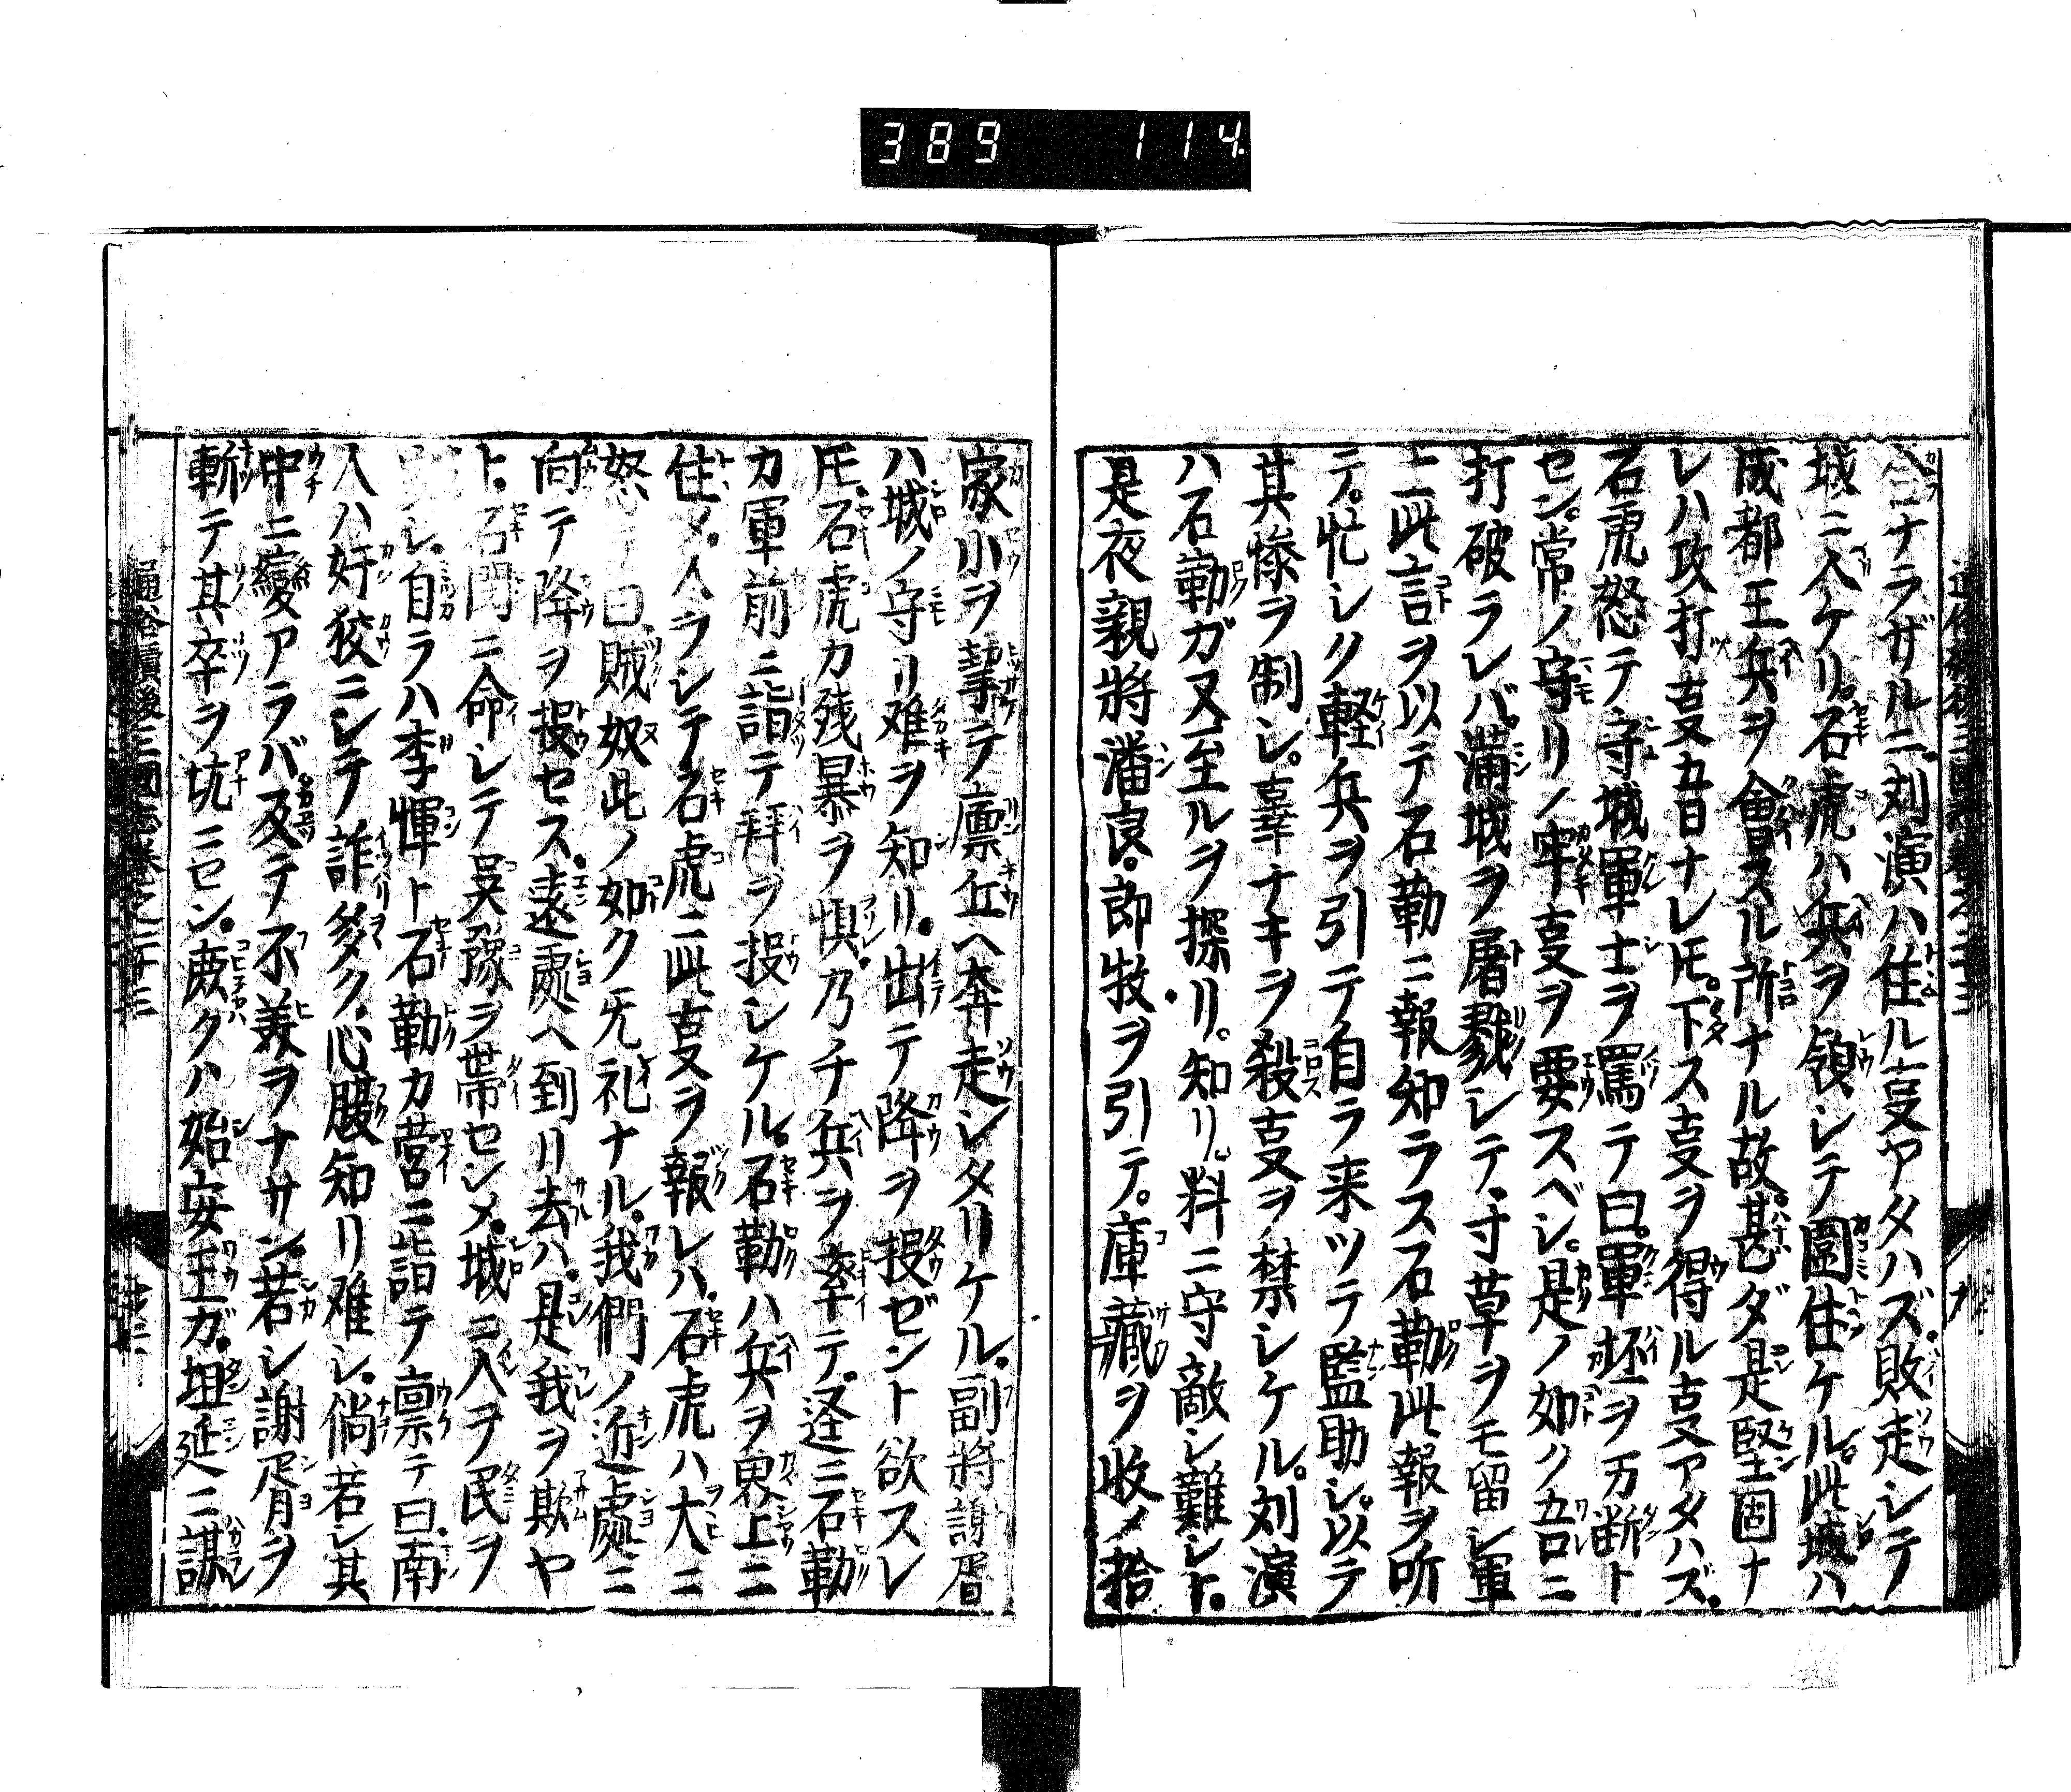 389 114
ナラザルニ。刘演ハ住ル㕝アタハズ。敗走シテ
城ニ入ケリ。石虎ハ兵ヲ領シテ圍住ケル。此城ハ
成都王兵ヲ會スル所ナル故。甚ダ是堅固ナ
レハ攻打㕝五日ナレ𪜈。下ス㕝ヲ得ル㕝アタハズ。
石虎怒テ守城軍士ヲ罵テ曰。軍坯ヲ万断ト
セン。常ノ守リノ牢㕝ヲ要スベシ。是ノ如ク吾ニ
打破ラレバ。満城ヲ屠戮シテ。寸草ヲモ留シ軍
士此言ヲ以テ石勒ニ報知ラス石勒此報ヲ听
テ。忙シク軽兵ヲ引テ自ラ来ツテ監助シ。以テ
其惨ヲ制シ。辜ナキヲ殺㕝ヲ禁シケル。刘演
ハ石勒ガ又至ルヲ探リ。知リ。料ニ守敵シ難シト。
是夜親將潘良。郎牧ヲ引テ。庫藏ヲ收メ拾
家小ヲ挈テ廩丘ヘ奔走シタリケル。副將謝胥
ハ城ノ守リ难ヲ知リ。出テ降ヲ投ゼント欲スレ
𪜈。石虎カ残暴ヲ惧。乃チ兵ヲ率テ。逕ニ石勒
カ軍前ニ詣テ拜ヲ投シケル。石勒ハ兵ヲ界上ニ
住メ。人ラシテ石虎ニ此㕝ヲ報レハ。石虎ハ大ニ
怒テ曰。賊奴此ノ如ク无礼ナル。我們ノ近處ニ
向テ降ヲ投セス。遠處ヘ到リ去ハ。是我ヲ欺ヤ
ト。石閔ニ命シテ吴豫ヲ帯セシメ。城ニ入ヲ民ヲ
シ。自ラハ李惲ト石勒カ营ニ詣テ禀テ曰。南
人ハ奸狡ニシテ詐多ク。心腹知リ难シ。倘若シ其
中ニ變アラバ。反テ不義ヲナサン。若シ謝胥ヲ
斬テ其卒ヲ坑ニセン。庶クハ始安王ガ。坦延ニ謀
通俗續後三國志卷之二十三